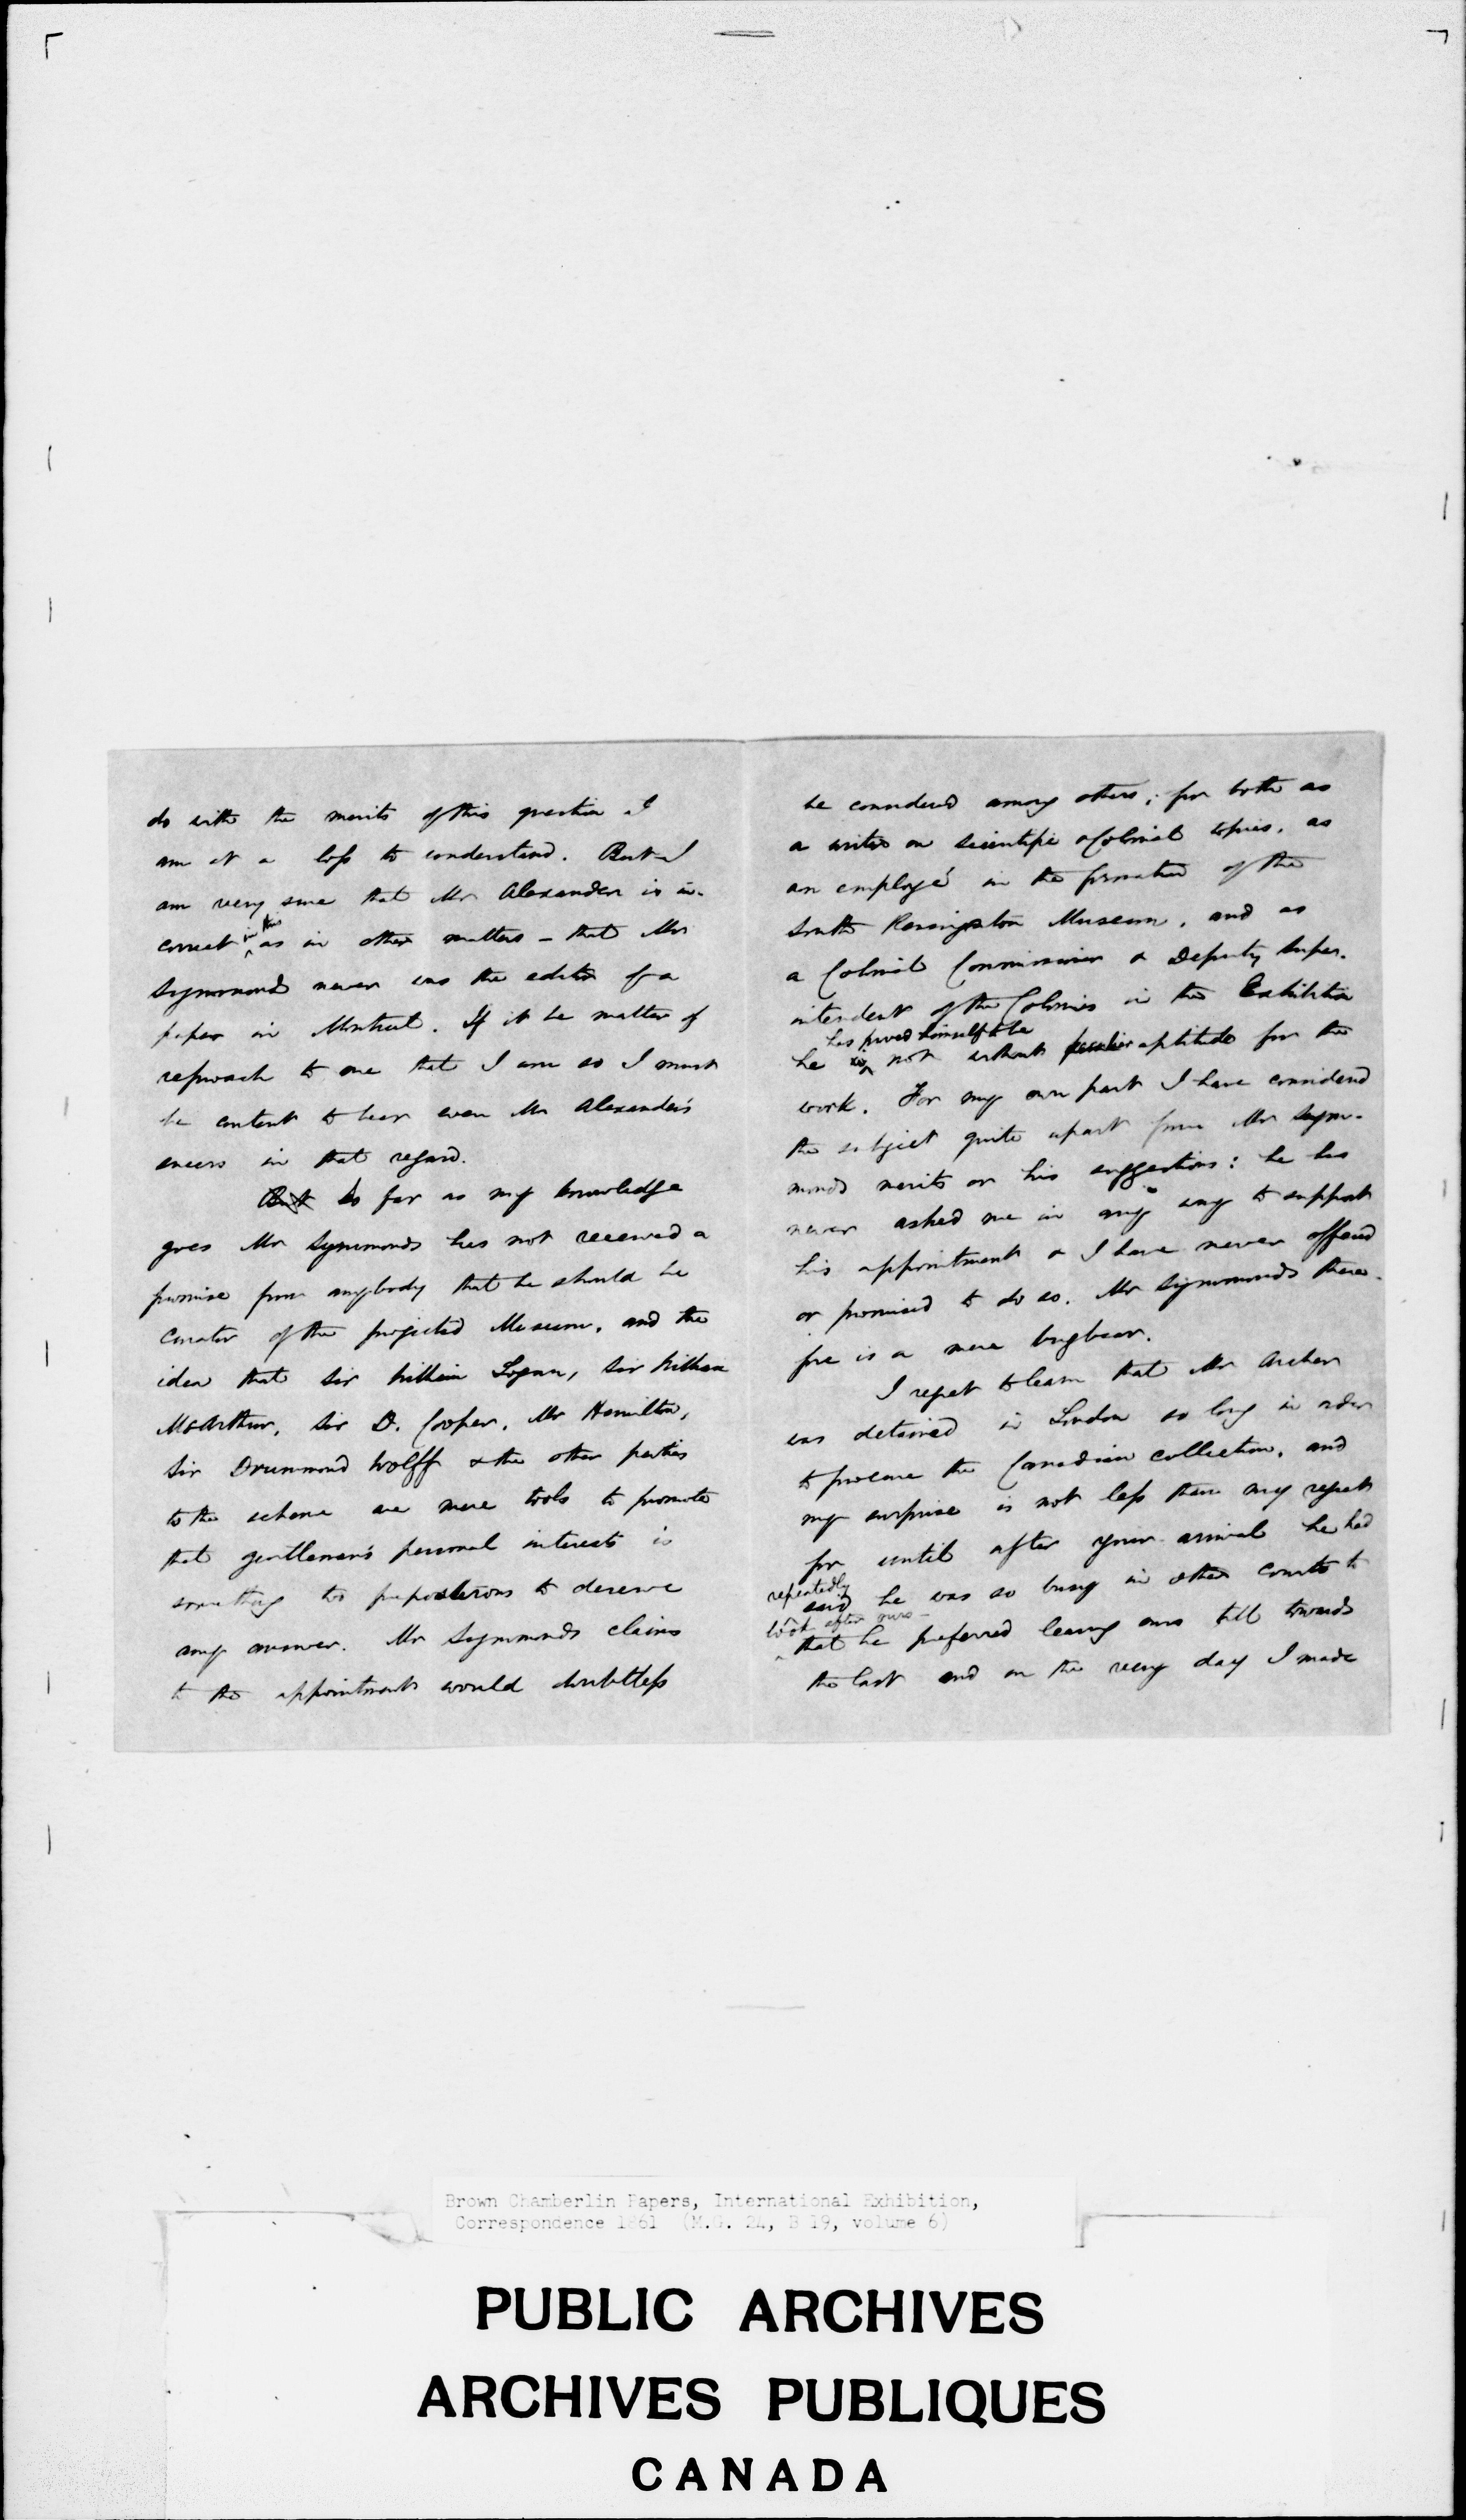 do with the merits of this question I
am at a loss to understand. But I
am very sure that Mr Alexander is in-
correct in this as in other matters – that Mr
Symmonds never was the editor of a
paper in Montreal. If it be matter of
reproach to me that I am so I must
be content to bear even Mr Alexander's
sneers in that regard.
But So far as my knowledge
goes Mr Symmonds has not received a
promise from anybody that he should be
Curator of the projected Museum, and the
idea that Sir William Logan, Sir William
McArthur, Sir D. Cooper, Mr Hamilton,
Sir Drummond Wolff & the other parties
to the scheme are mere tools to promote
that gentleman's personal interests is
something too preposterous to deserve
any answer. Mr Symmonds claims
to the appointment would doubtless
be considered among others; for both as
a writer on scientific & Colonial topics, as
an employé in the formation of the
South Kensington Museum, and as
a Colonial Commissioner & Deputy Super-
intendent of the Colonies in the Exhibition
has proved himself to be
he is not without peculiar aptitude for the
work. For my own part I have considered
the subject quite apart from Mr Sym-
monds merits or his suggestions: he has
never asked me in any way to support
his appointment & I have never offered
or promised to do so. Mr Symmonds there-
fore is a mere bugbear.
I regret to learn that Mr Archer
was detained in London so long in order
to procure the Canadian collection, and
my surprise is not less than my regret
for until after your arrival he had
repeatedly
said he was so busy in other courts to
look after ours –
that he preferred leaving ours till towards
the last and on the very day I made
Brown Chamberlin Papers, International Exhibition,
Correspondence 1861 (M.G. 24, B 19, volume 6)
PUBLIC ARCHIVES
ARCHIVES PUBLIQUES
CANADA